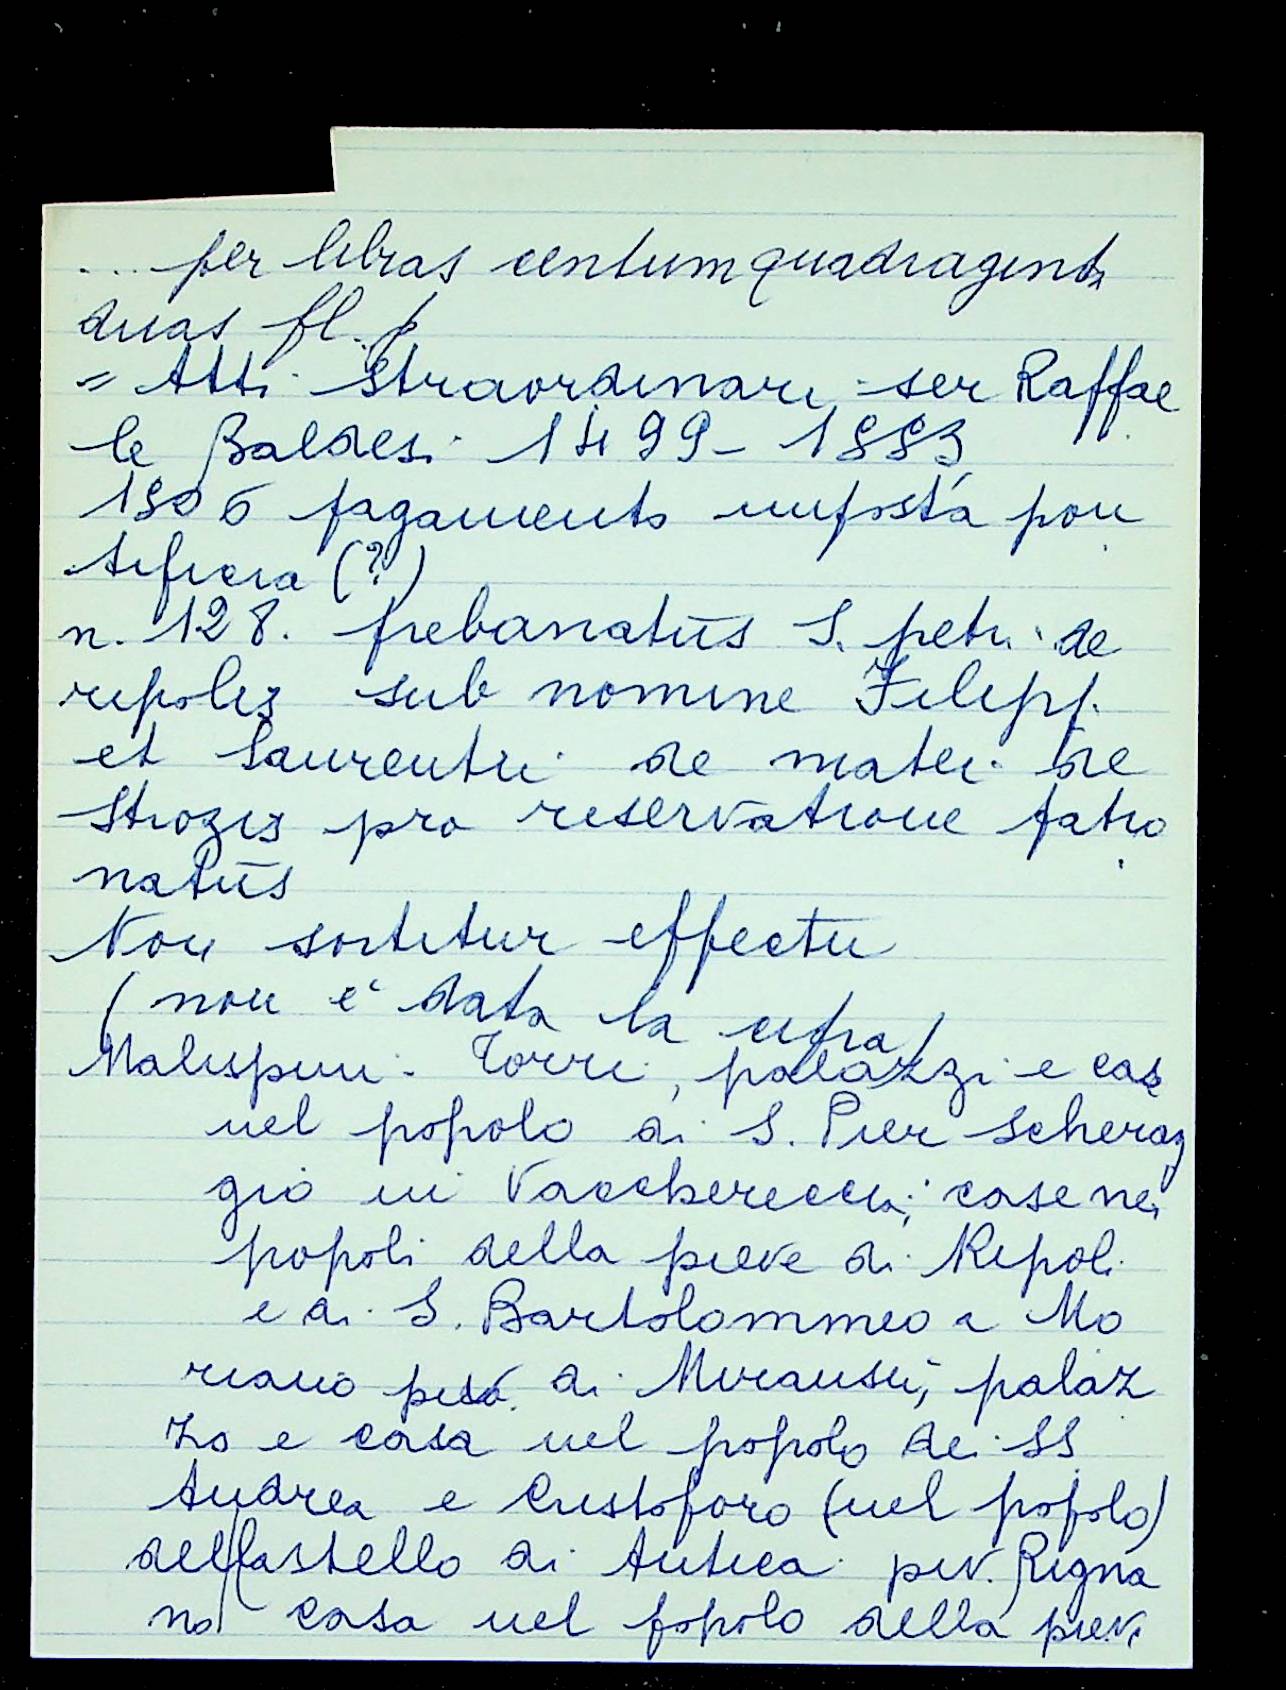 ... per libras centumquadraginta
duas fl. p
= Atti straordinari, ser Raffae
le Baldesi 1499-1553
1506 pagamento imposta pon
tificia (?)
n. 128. plebanatus S. petri de
ripolis sub nomine Filippi
et Laurentii de matei de
Strozis pro reservatione patro
natus
Non sortitur effectu
(non è data la cifra)
Malispini. Torri, palazzi e case
nel popolo di S. Pier Scherag
gio in Vacchereccia; case nei
popoli della pieve di Ripoli
e di S. Bartolommeo a Mo
riano piv. di Miransù; palaz
zo e casa nel popolo dei SS
Andrea e Cristoforo (nel popolo)
del Castello di Antica piv. Rigna
no casa nel popolo della pieve